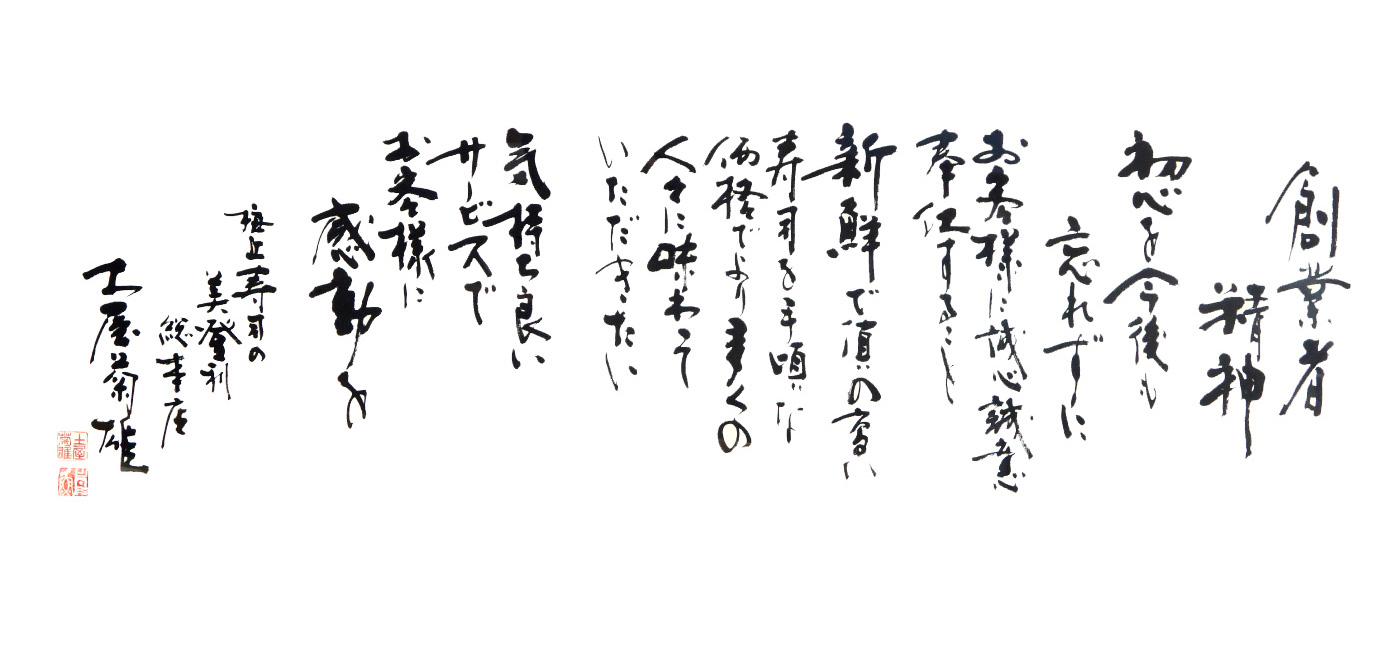 創業者
精神
初心を今後も
忘れずに
お客様に誠心誠意
奉仕すること
新鮮で質の高い
寿司を手頃な
価格でより多くの
人々に味わって
いただきたい
気持ち良い
サービスで
お客様に
感動を
梅丘寿司の
美登利
総本店
土屋菊雄